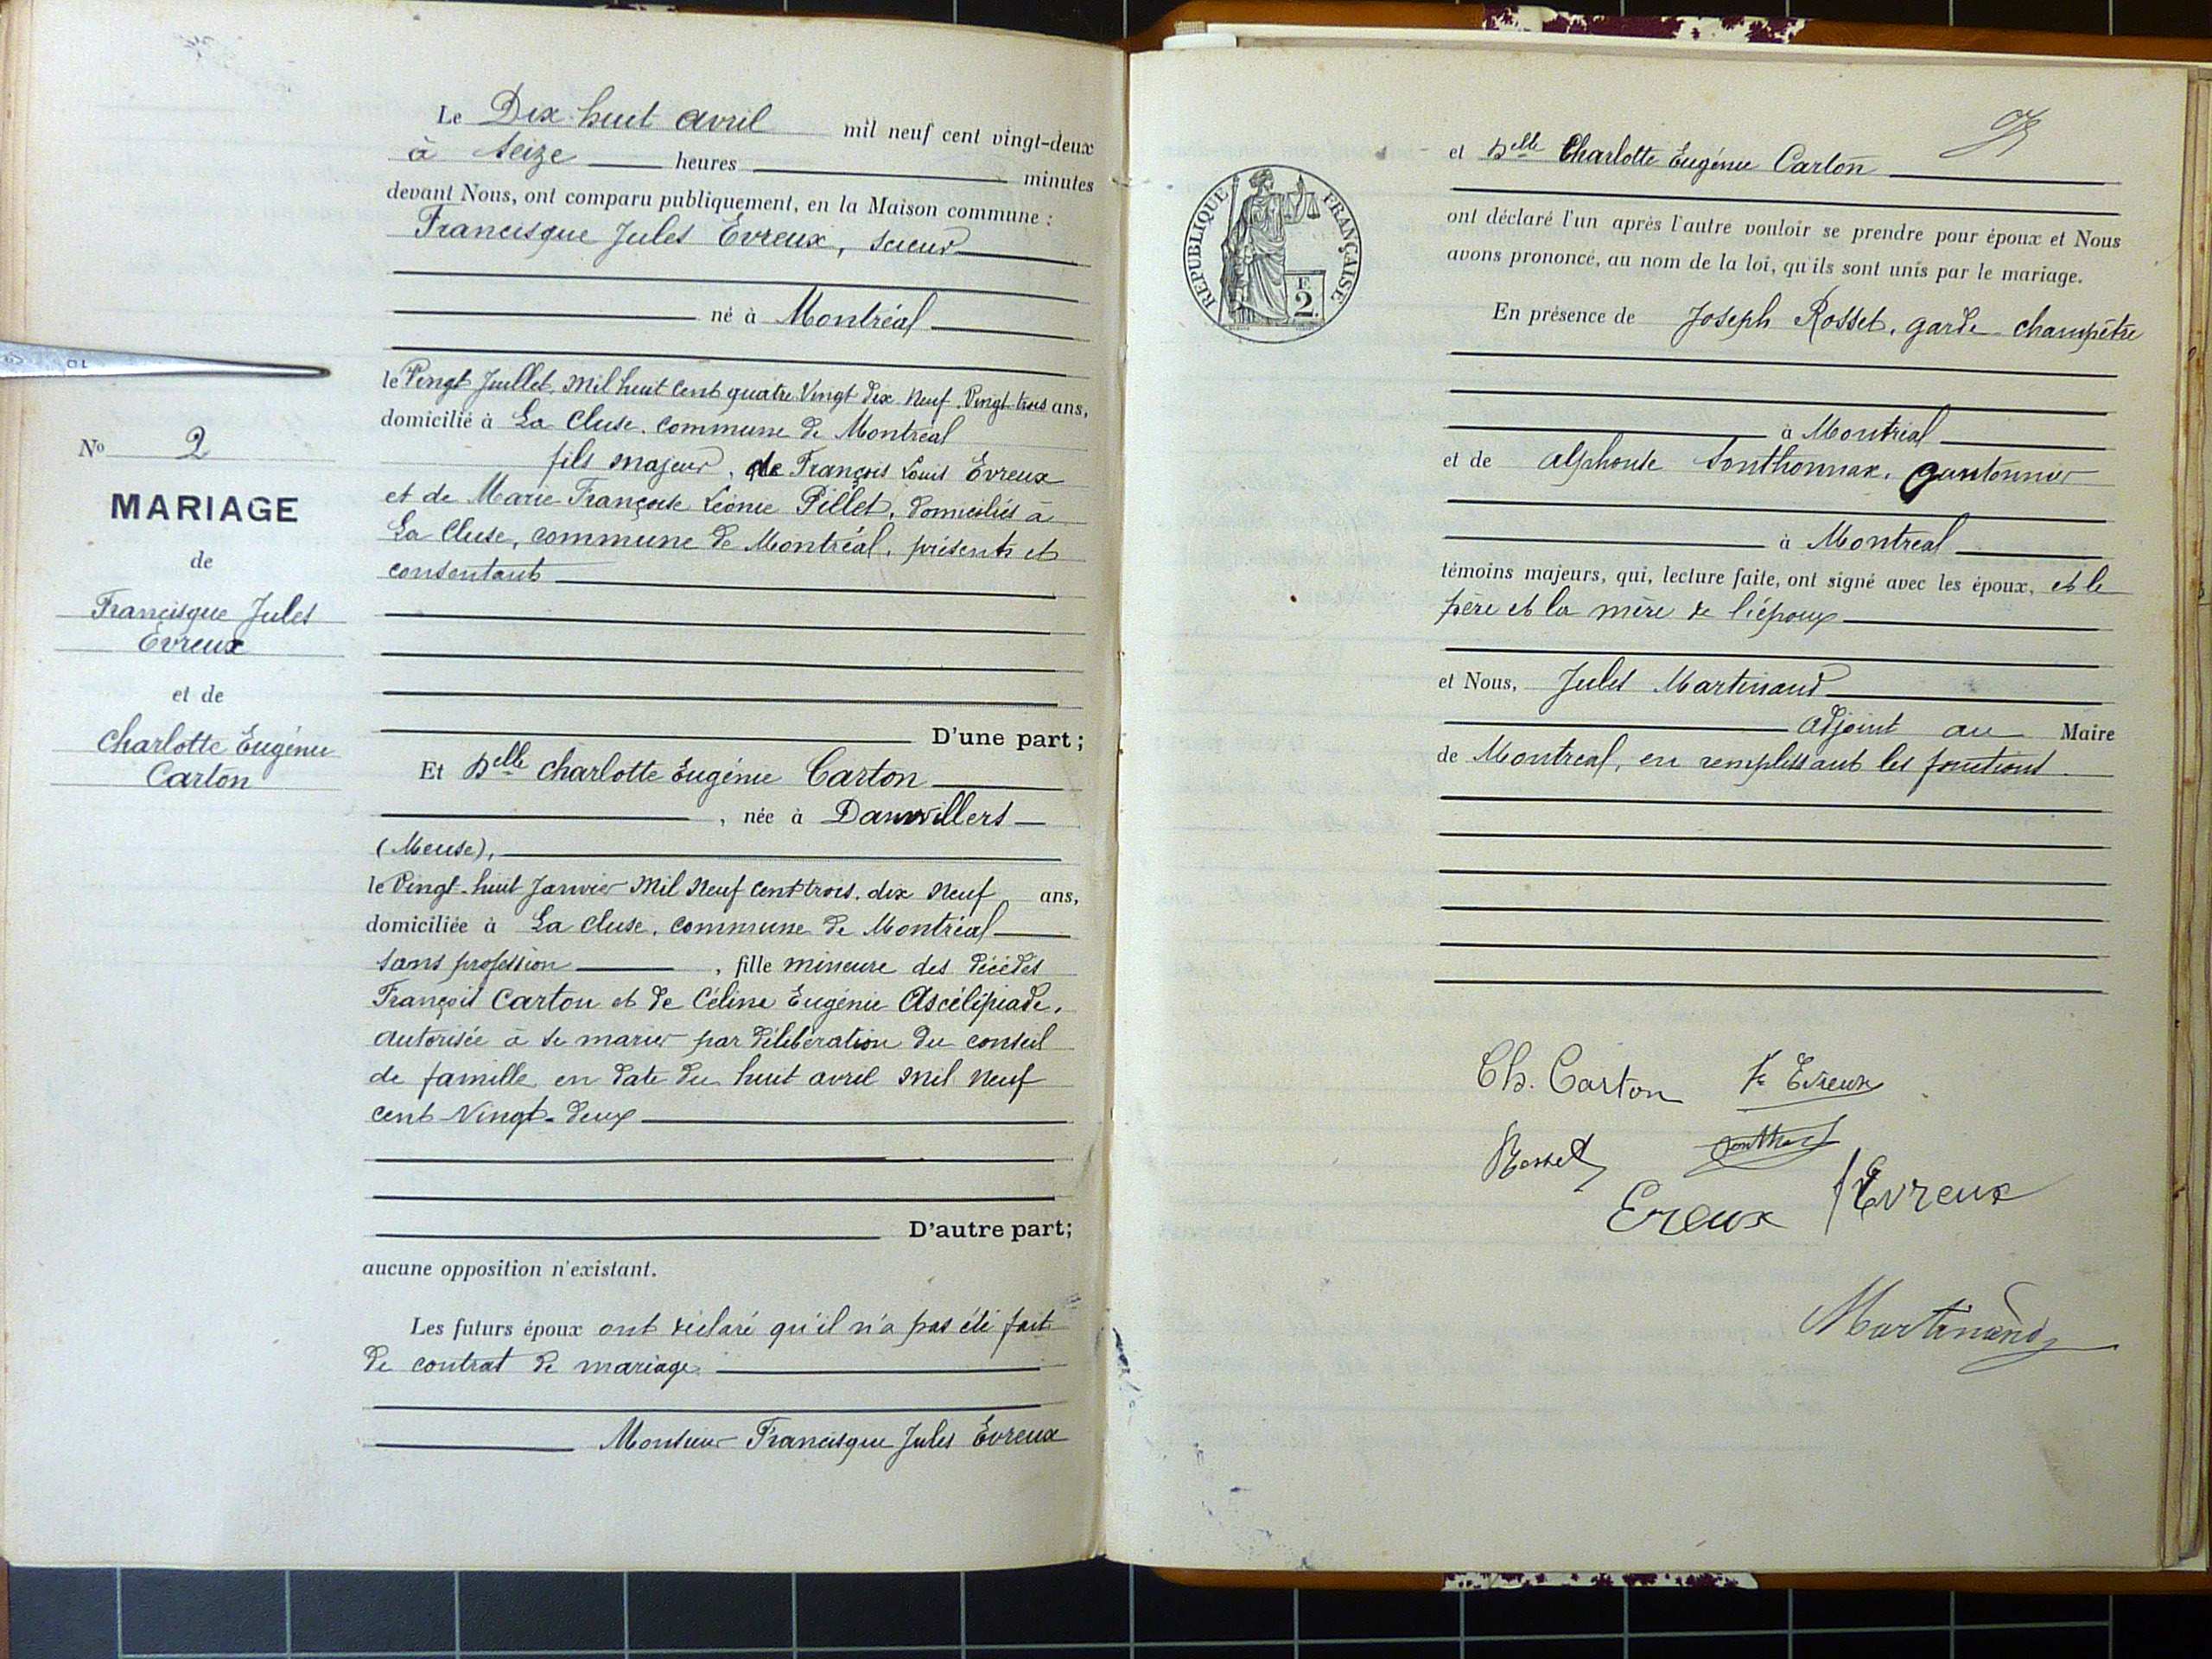 Le Dix-huit avril mil neuf cent vingt-deux
à seize heures minutes
devant Nous, ont comparu publiquement, en la Maison commune :
Francisque Jules Evreux, scieur
né à Montréal
le Vingt Juillet, Mil huit cent quatre Vingt dix Neuf. Vingt-trois ans,
domicilié à La Cluse. commune de Montréal
fils majeur, de François Louis Evreux
et de Marie Françoise Léonie Pillet, domiciliés à
La Cluse, commune de Montréal, présents et
consentant
D'une part;
Et Delle Charlotte Eugénie Carton
, née à Damvillers
(Meuse),
le Vingt-huit Janvier Mil Neuf cent trois. dix Neuf ans,
domiciliée à La Cluse. commune de Montréal
sans profession , fille mineure des décédés
François Carton et de Céline Eugénie Ascélipiade,
autorisée à se marier par délibération du conseil
de famille en date du huit avril Mil Neuf
cent Vingt-deux
D'autre part;
aucune opposition n'existant.
Les futurs époux ont déclaré qu'il n'a pas été fait
de contrat de mariage
Monsieur Francisque Jules Evreux
No 2
MARIAGE
de
Francisque Jules
Evreux
et de
Charlotte Eugénie
Carton
et Delle Charlotte Eugénie Carton
ont déclaré l'un après l'autre vouloir se prendre pour époux et Nous
avons prononcé, au nom de la loi, qu'ils sont unis par le mariage.
En présence de Joseph Rosset, garde-champêtre
à Montréal
et de Alphonse Sonthonnax, cantonnier
à Montréal
témoins majeurs, qui, lecture faite, ont signé avec les époux, et le
père et la mère de l'époux
et Nous, Jules Martinand
adjoint au Maire
de Montréal, en remplissant les fonctions.
RÉPUBLIQUE FRANÇAISE
F.
2.
Ch. Carton Evreux
Rosset
Evreux Evreux
Martinand